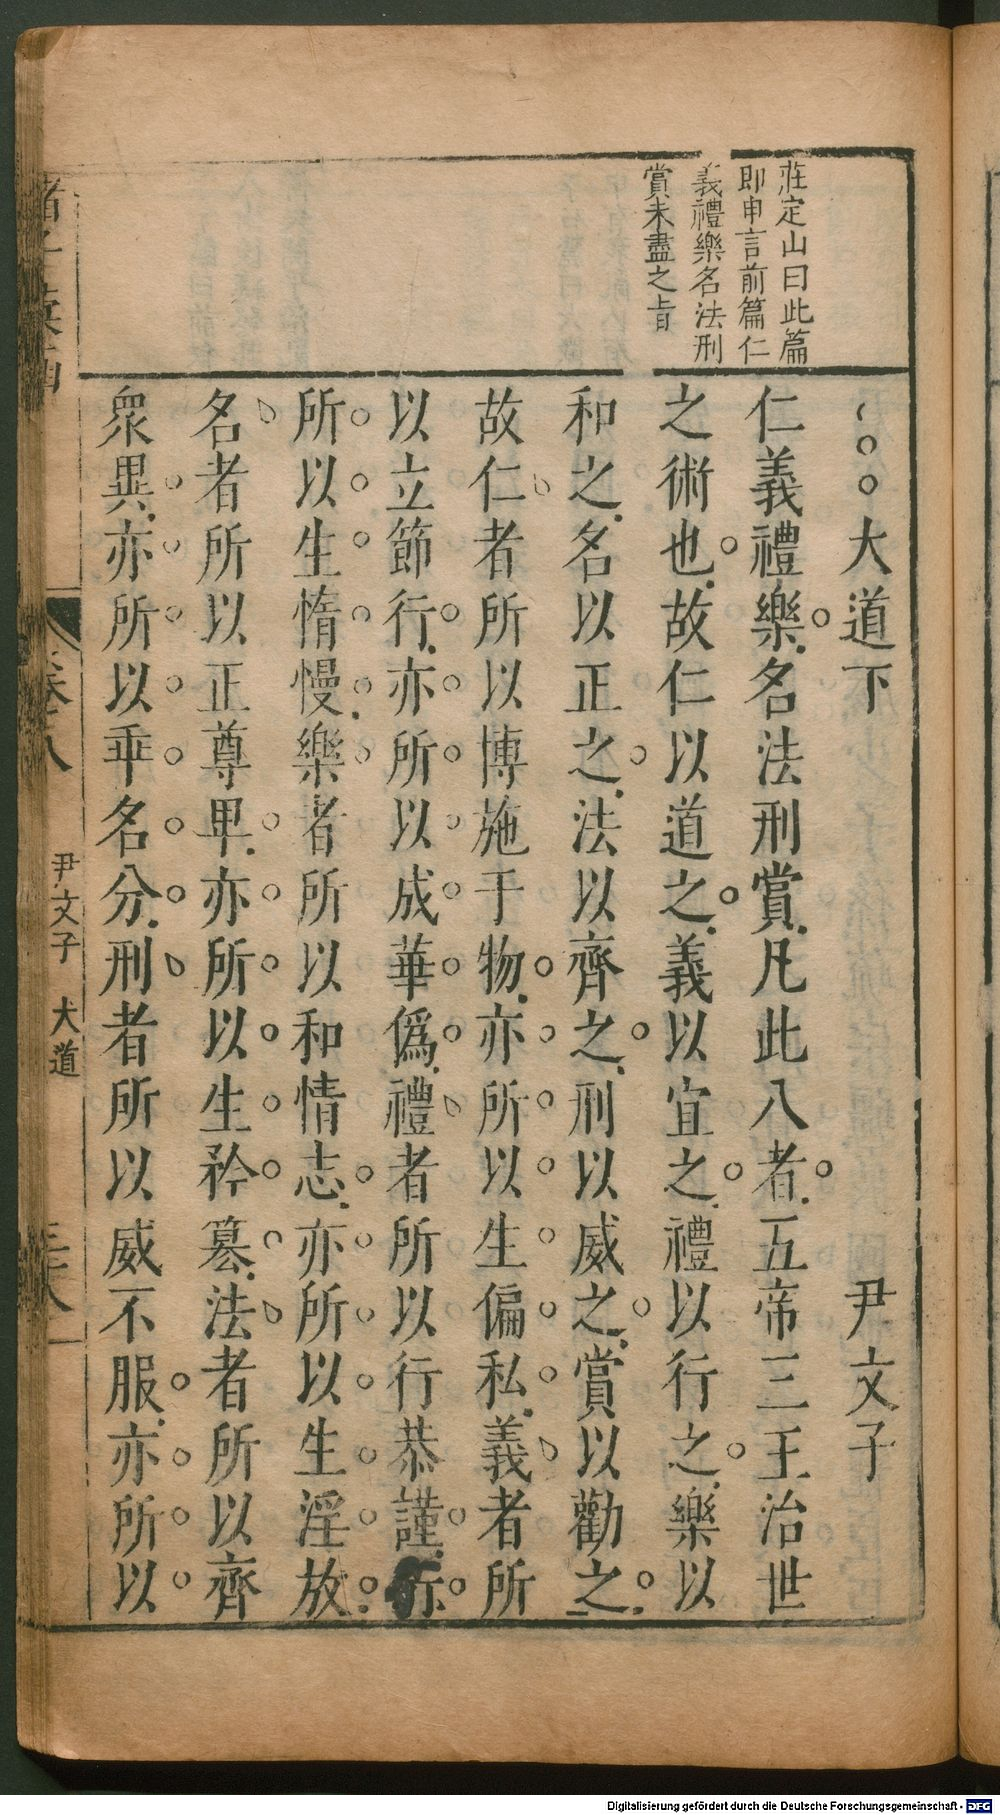 莊定山曰此篇
即申言前篇仁
義禮樂名法刑
賞未盡之旨
大道下 尹文子
仁義禮樂名法刑賞凡此八者五帝三王治世
之術也故仁以道之義以宜之禮以行之樂以
和之名以正之法以齊之刑以威之賞以勸之
故仁者所以博施于物亦所以生偏私義者所
以立節行亦所以成華僞禮者所以行恭謹亦
所以生惰慢樂者所以和情志亦所以生淫放
名者所以正尊卑亦所以生矜篡法者所以齊
衆異亦所以乖名分刑者所以威不服亦所以
尹文子 大道
Digitalisierung gefördert durch die Deutsche Forschungsgemeinschaft - DFG